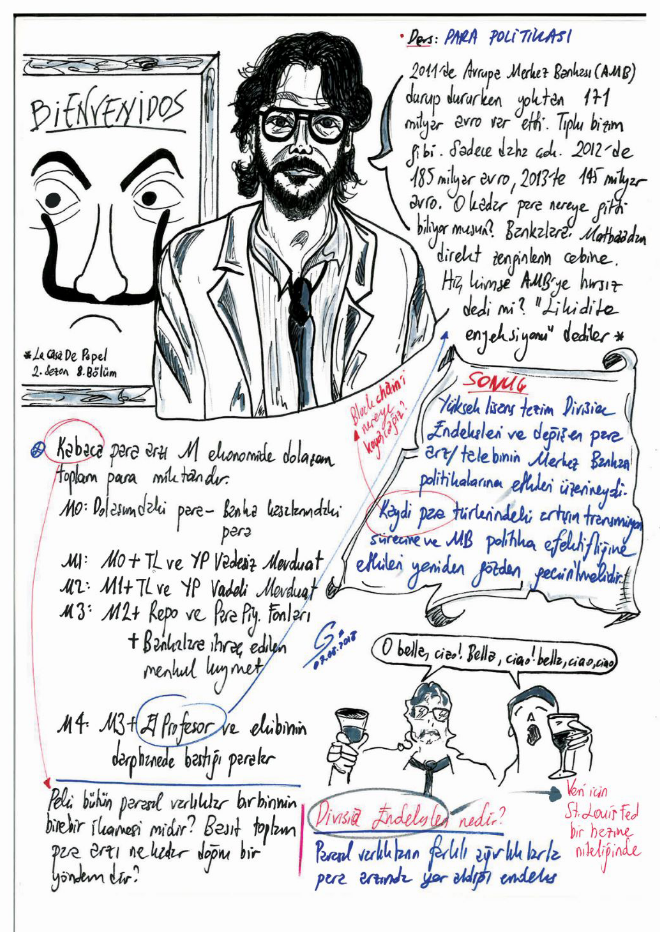 • Ders: PARA POLİTİKASI
2011'de Avrupa Merkez Bankası (AMB)
durup dururken yoktan 171
milyar avro var etti. Tıpkı bizim
gibi. Sadece daha çok. 2012'de
185 milyar avro, 2013'te 145 milyar
avro. O kadar para nereye gitti
biliyor musun? Bankalara. Matbaadan
direkt zenginlerin cebine.
Hiç kimse AMB'ye hırsız
dedi mi? "Likidite
enjeksiyonu" dediler *
BİENVENIDOS
* La Casa De Papel
2. Sezon 8. Bölüm
SONUÇ
Yüksek lisans tezim Divisia
Endeksleri ve değişen para
arz/talebinin Merkez Bankası
politikalarına etkileri üzerineydi.
Kaydi para türlerindeki artışın transmisyon
sürecine ve MB politika efektifliğine
etkileri yeniden gözden geçirilmelidir.
Blockchain'i
nereye
koyacağız?
Kabaca para arzı M ekonomide dolaşan
toplam para miktarıdır.
M0: Dolaşımdaki para - Banka kasalarındaki
para
M1: M0 + TL ve YP Vadesiz Mevduat
M2: M1 + TL ve YP Vadeli Mevduat
M3: M2 + Repo ve Para Piy. Fonları
+ Bankalarca ihraç edilen
menkul kıymet
M4: M3 + El Profesor ve ekibinin
darphanede bastığı paralar
O bella, ciao! Bella, ciao! bella, ciao, ciao
Peki bütün parasal varlıklar birbirinin
birebir ikamesi midir? Basit toplam
para arzı ne kadar doğru bir
yöntemdir?
Divisia Endeksleri nedir?
Parasal varlıkların farklı ağırlıklarla
para arzında yer aldığı endeks
Veri için
St. Louis Fed
bir hazine
niteliğinde